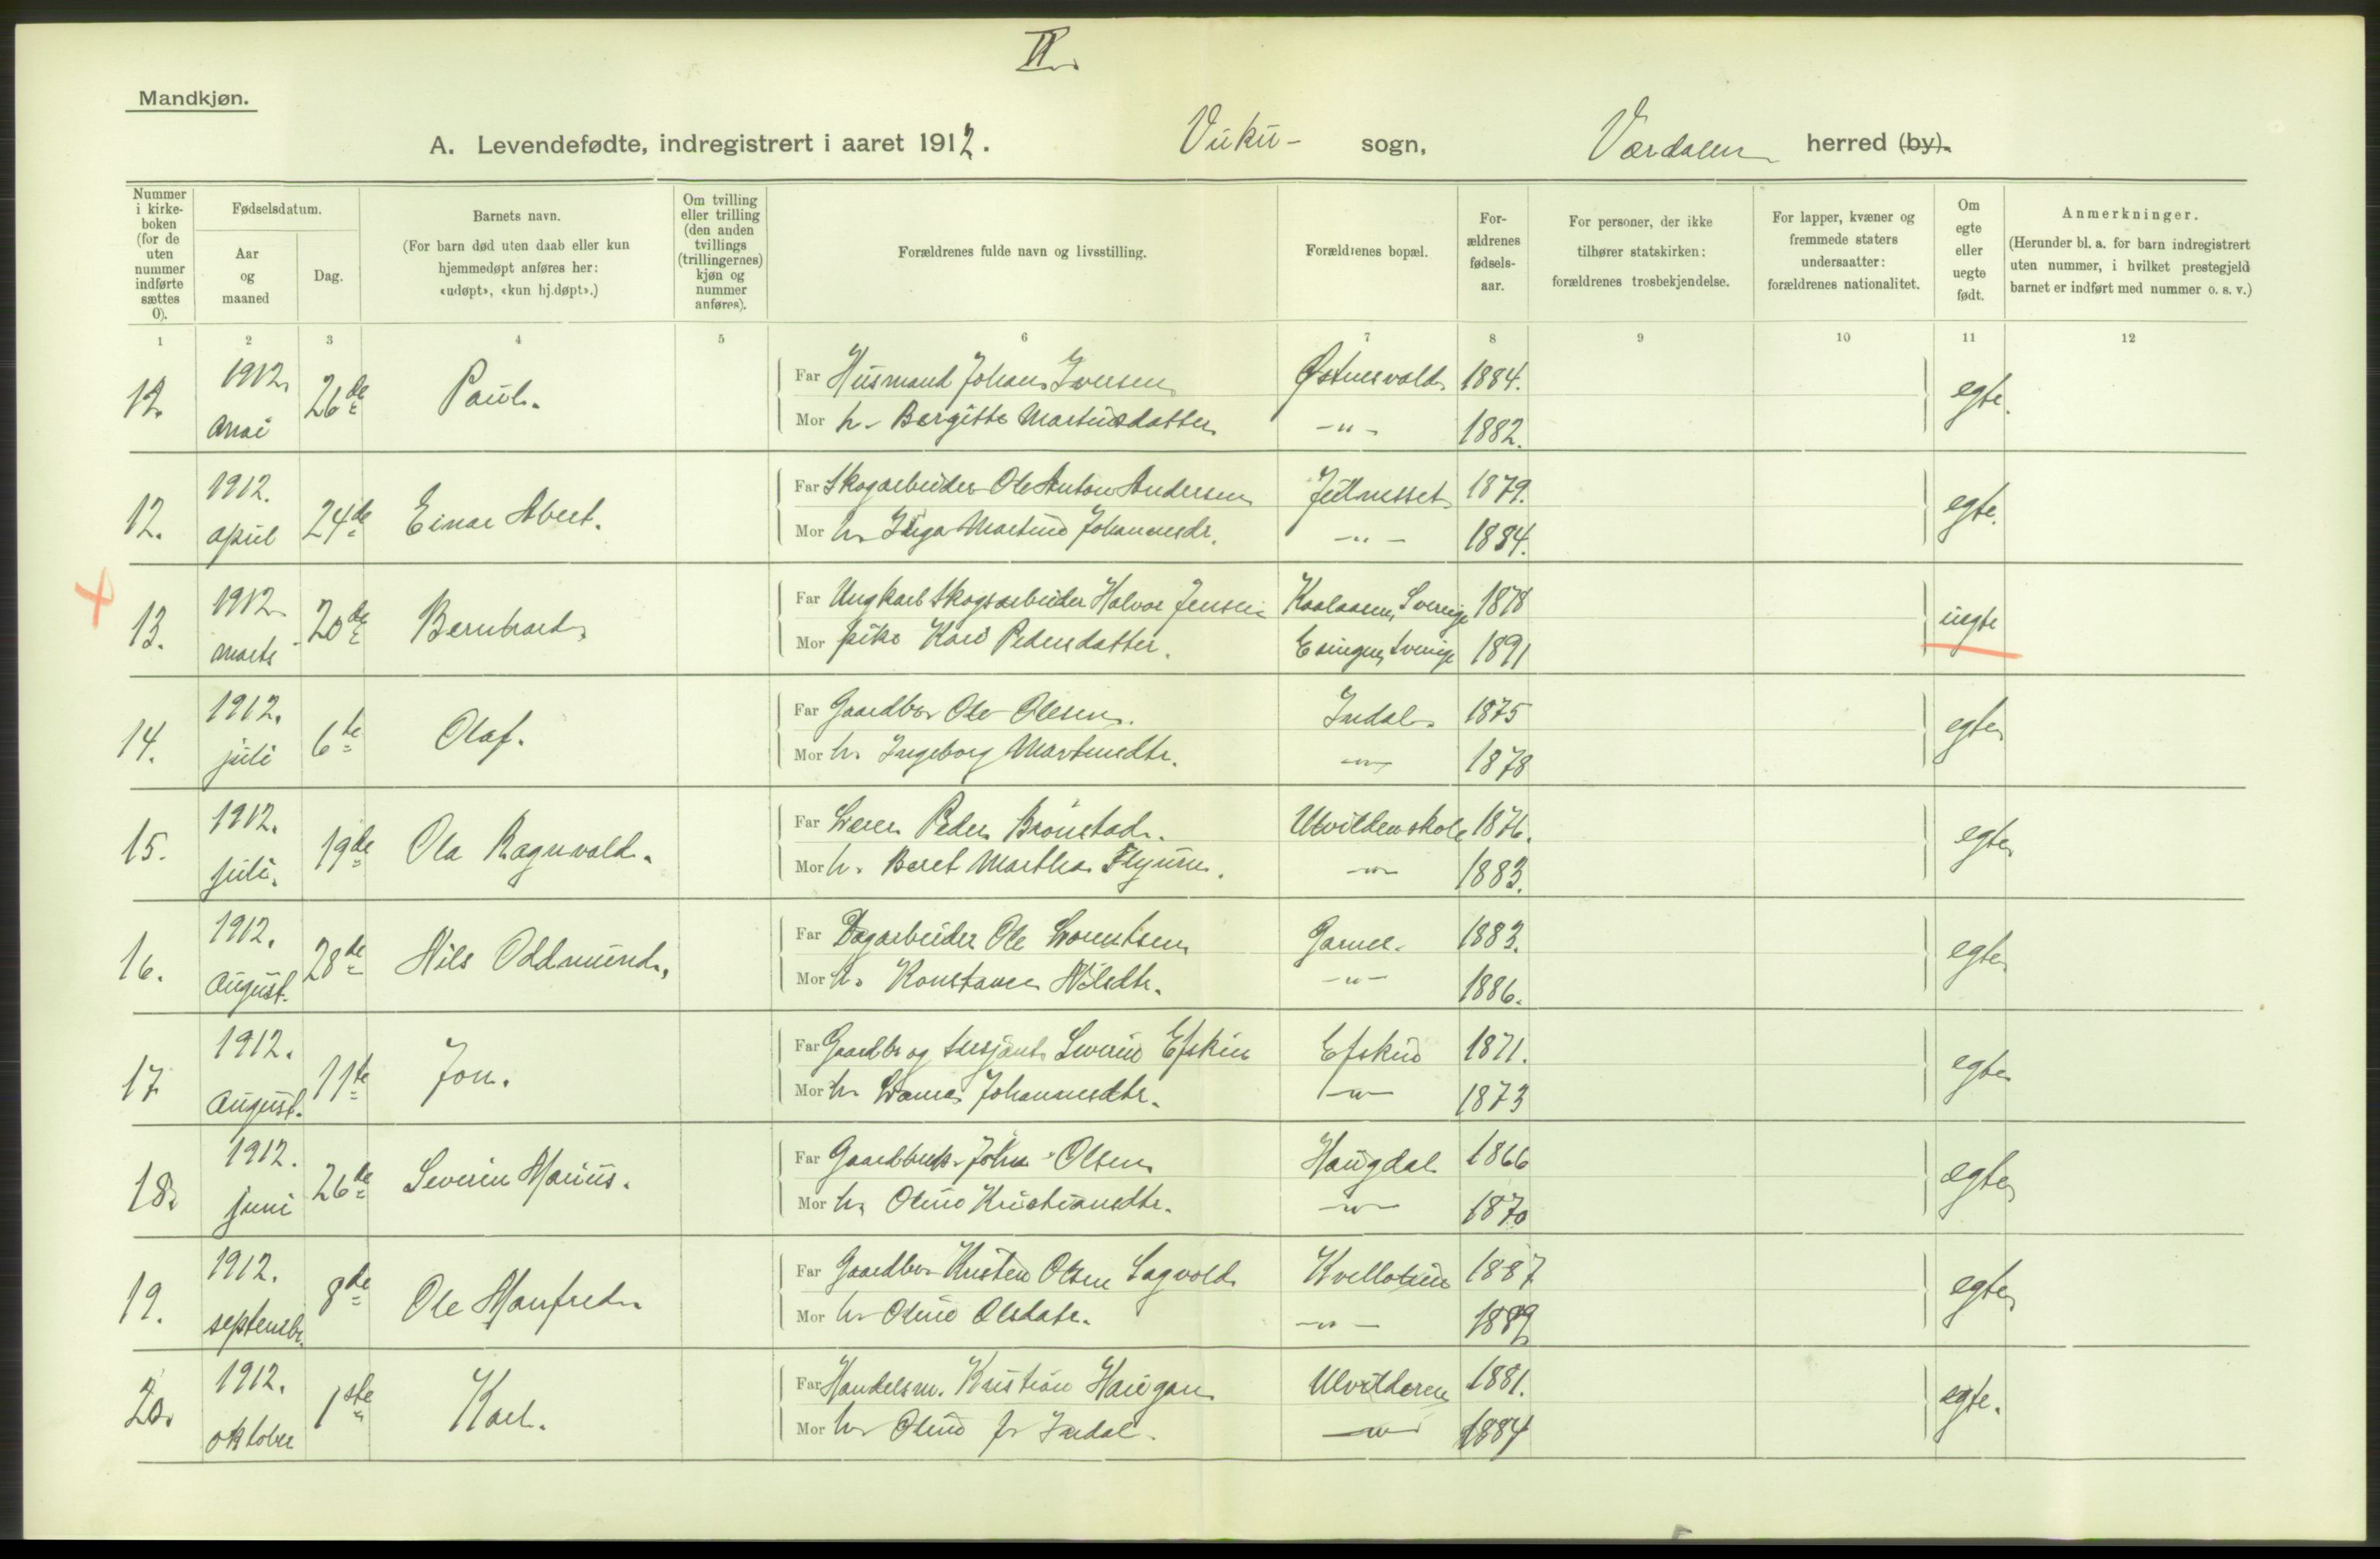 II.
Mandkjøn.
A. Levendefødte, indregistrert i aaret 1912. Vuku- sogn, Værdalen herred (by).
Nummer i kirkeboken (for de uten nummer indførte sættes 0).
Fødselsdatum.
Aar og maaned
Dag.
Barnets navn.
(For barn død uten daab eller kun hjemmedøpt anføres her: «udøpt», «kun hj.døpt».)
Om tvilling eller trilling (den anden tvillings (trillingernes) kjøn og nummer anføres).
Forældrenes fulde navn og livsstilling.
Forældrenes bopæl.
Forældrenes fødselsaar.
For personer, der ikke tilhører statskirken: forældrenes trosbekjendelse.
For lapper, kvæner og fremmede staters undersaatter: forældrenes nationalitet.
Om egte eller uegte født.
Anmerkninger.
(Herunder bl. a. for barn indregistrert uten nummer, i hvilket prestegjeld barnet er indført med nummer o. s. v.)
1 2 3 4 5 6 7 8 9 10 11 12
12. 1912. mai 26de Paul. Far Husmand Johan Iversen Østnesvald 1884. egte.
Mor h. Bergitte Martinsdatter -"- 1882.
12. 1912. april 24de Einar Abert. Far Skogarbeider Ole Anton Andersen 1879. egte.
Mor h. Inga Martine Johannesdr. -"- 1884.
13. 1912. marts 20de Bernhard. Far Ungkarl Skogsarbeider Halvor Jensen Sverige 1878 uegte
Mor pike Kari Pedersdatter. Sverige 1891
14. 1912. juli 6te Olaf. Far Gaardbr. Ole Olesen. Indal. 1875 egte
Mor h. Ingeborg Martinsdtr. -"- 1878
15. 1912. juli. 19de Ola Ragnvald. Far Lærer Peder Brønstad. Ulvilden skole 1876. egte
Mor h. Beret Marthea -"- 1883.
16. 1912. August. 28de Nils Oddmund, Far Dagarbeider Ole Lorentsen Garnes. 1883. egte
Mor h. Konstance Nilsdtr. -"- 1886.
17 1912. August. 11te Jon. Far Gaardbr og sersjant Severin Efskin Efskin 1871. egte
Mor h. Johannesdtr. -"- 1873
18. 1912. juni 26de Severin Marius. Far Gaardbruk. Johan Olsen Haugdal 1866 egte
Mor h. Oline Kristiansdtr. -"- 1870
19. 1912. septembr. 8de Ole Manfred. Far Gaardbr. Kristen Olsen Sagvold Kvellotrøen 1887 egte
Mor h. Oline Olsdatr. -"- 1889
20. 1912. oktober 1ste Karl. Far Handelsm. Kristian Haugan Ulvilderen 1881. egte.
Mor h. Oline f. Indal. -"- 1884